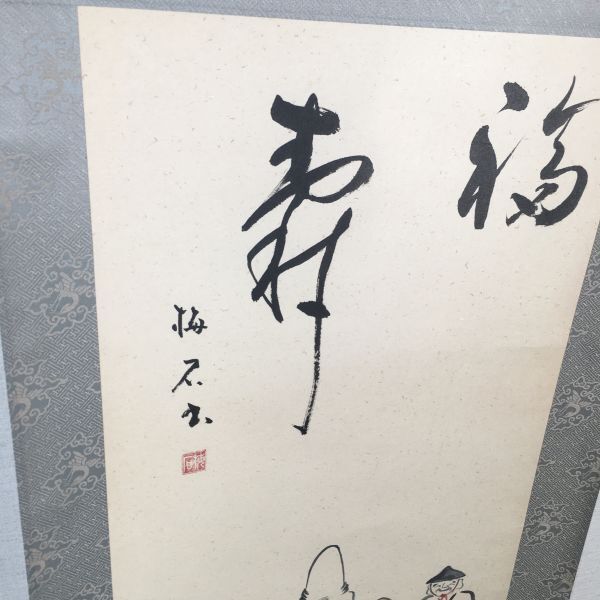 福
壽
梅石書